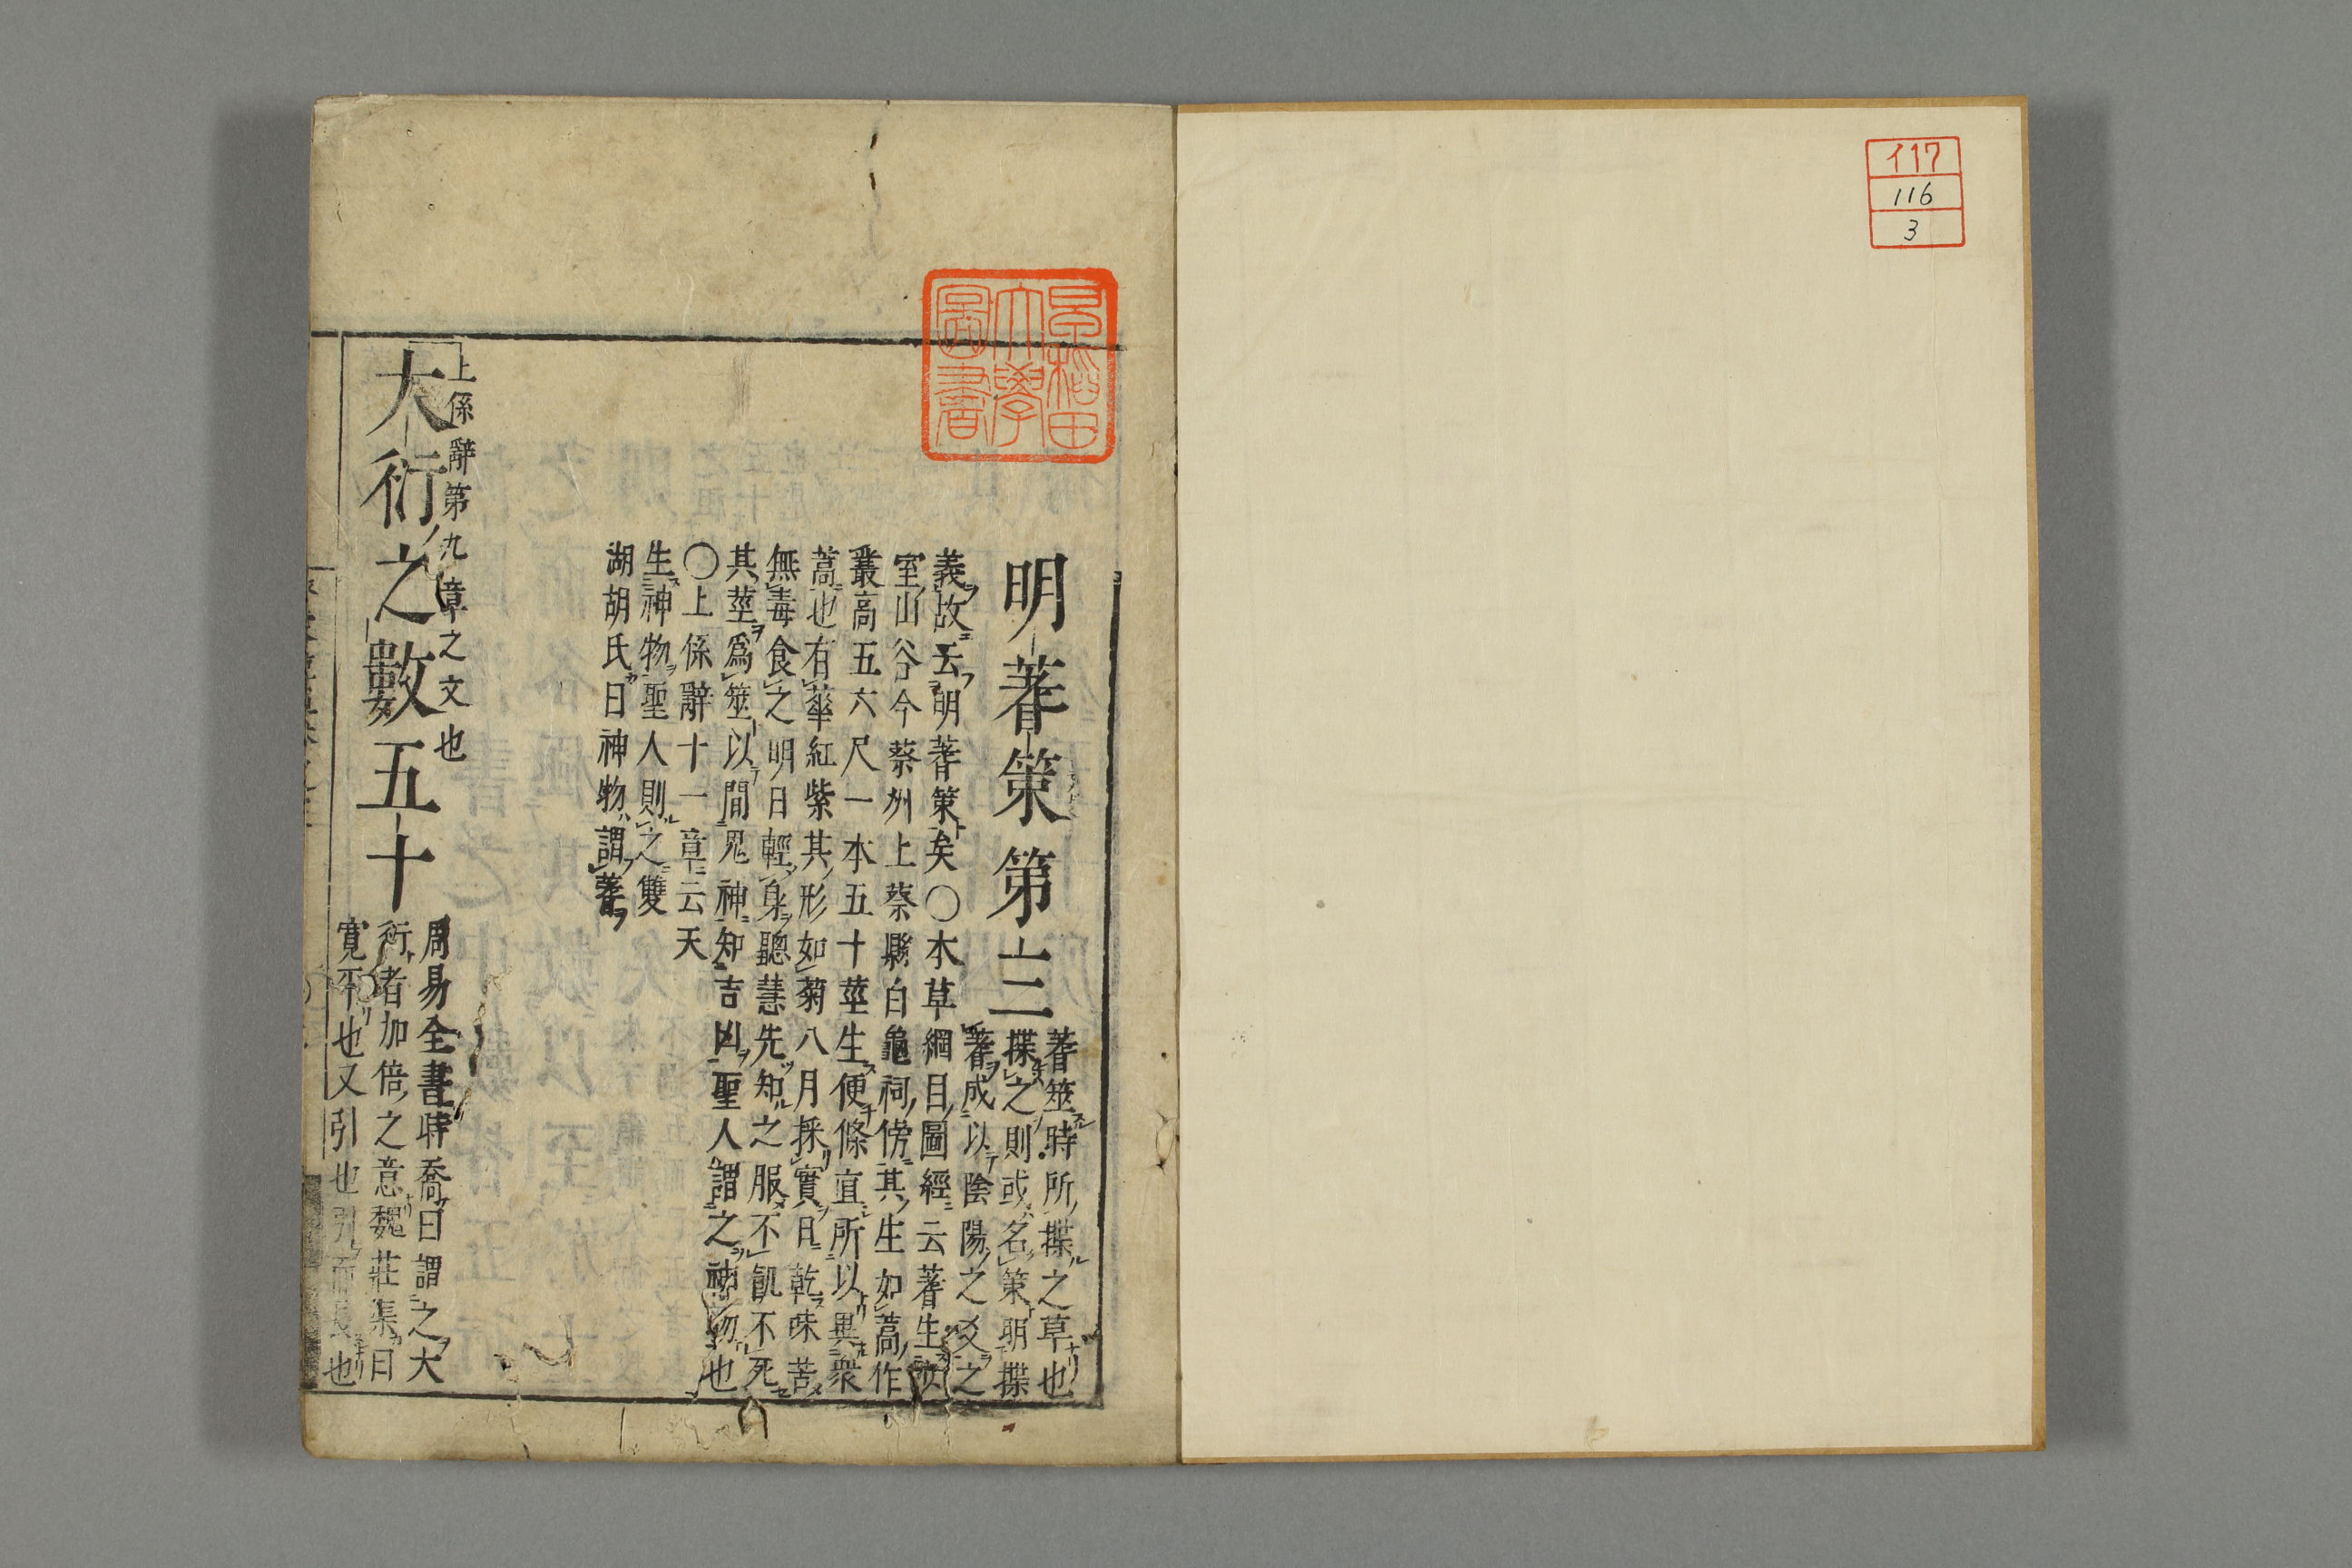 イ17
116
3
早稲田
大學
圖書
明蓍策第三
蓍筮時所揲之草也
揲之則或名策明揲
蓍成以陰陽之爻之
義故云明蓍策矣〇本草綱目圖經云蓍生
室山谷今蔡州上蔡縣白龜祠傍其生如蒿作
叢高五六尺一本五十莖生便條直所以異衆
蒿也有華紅紫其形如菊八月採實日乾味苦
無毒食之明目輕身聰慧先知之服不飢不死
其莖爲筮以間鬼神知吉凶聖人謂之神物也
〇上係辭十一章云天
生神物聖人則之雙
湖胡氏曰神物謂蓍
上係辭第九章之文也
大衍之數五十
周易全書時喬曰謂之大
衍者加倍之意魏莊集曰
寛平也又引也引而長也